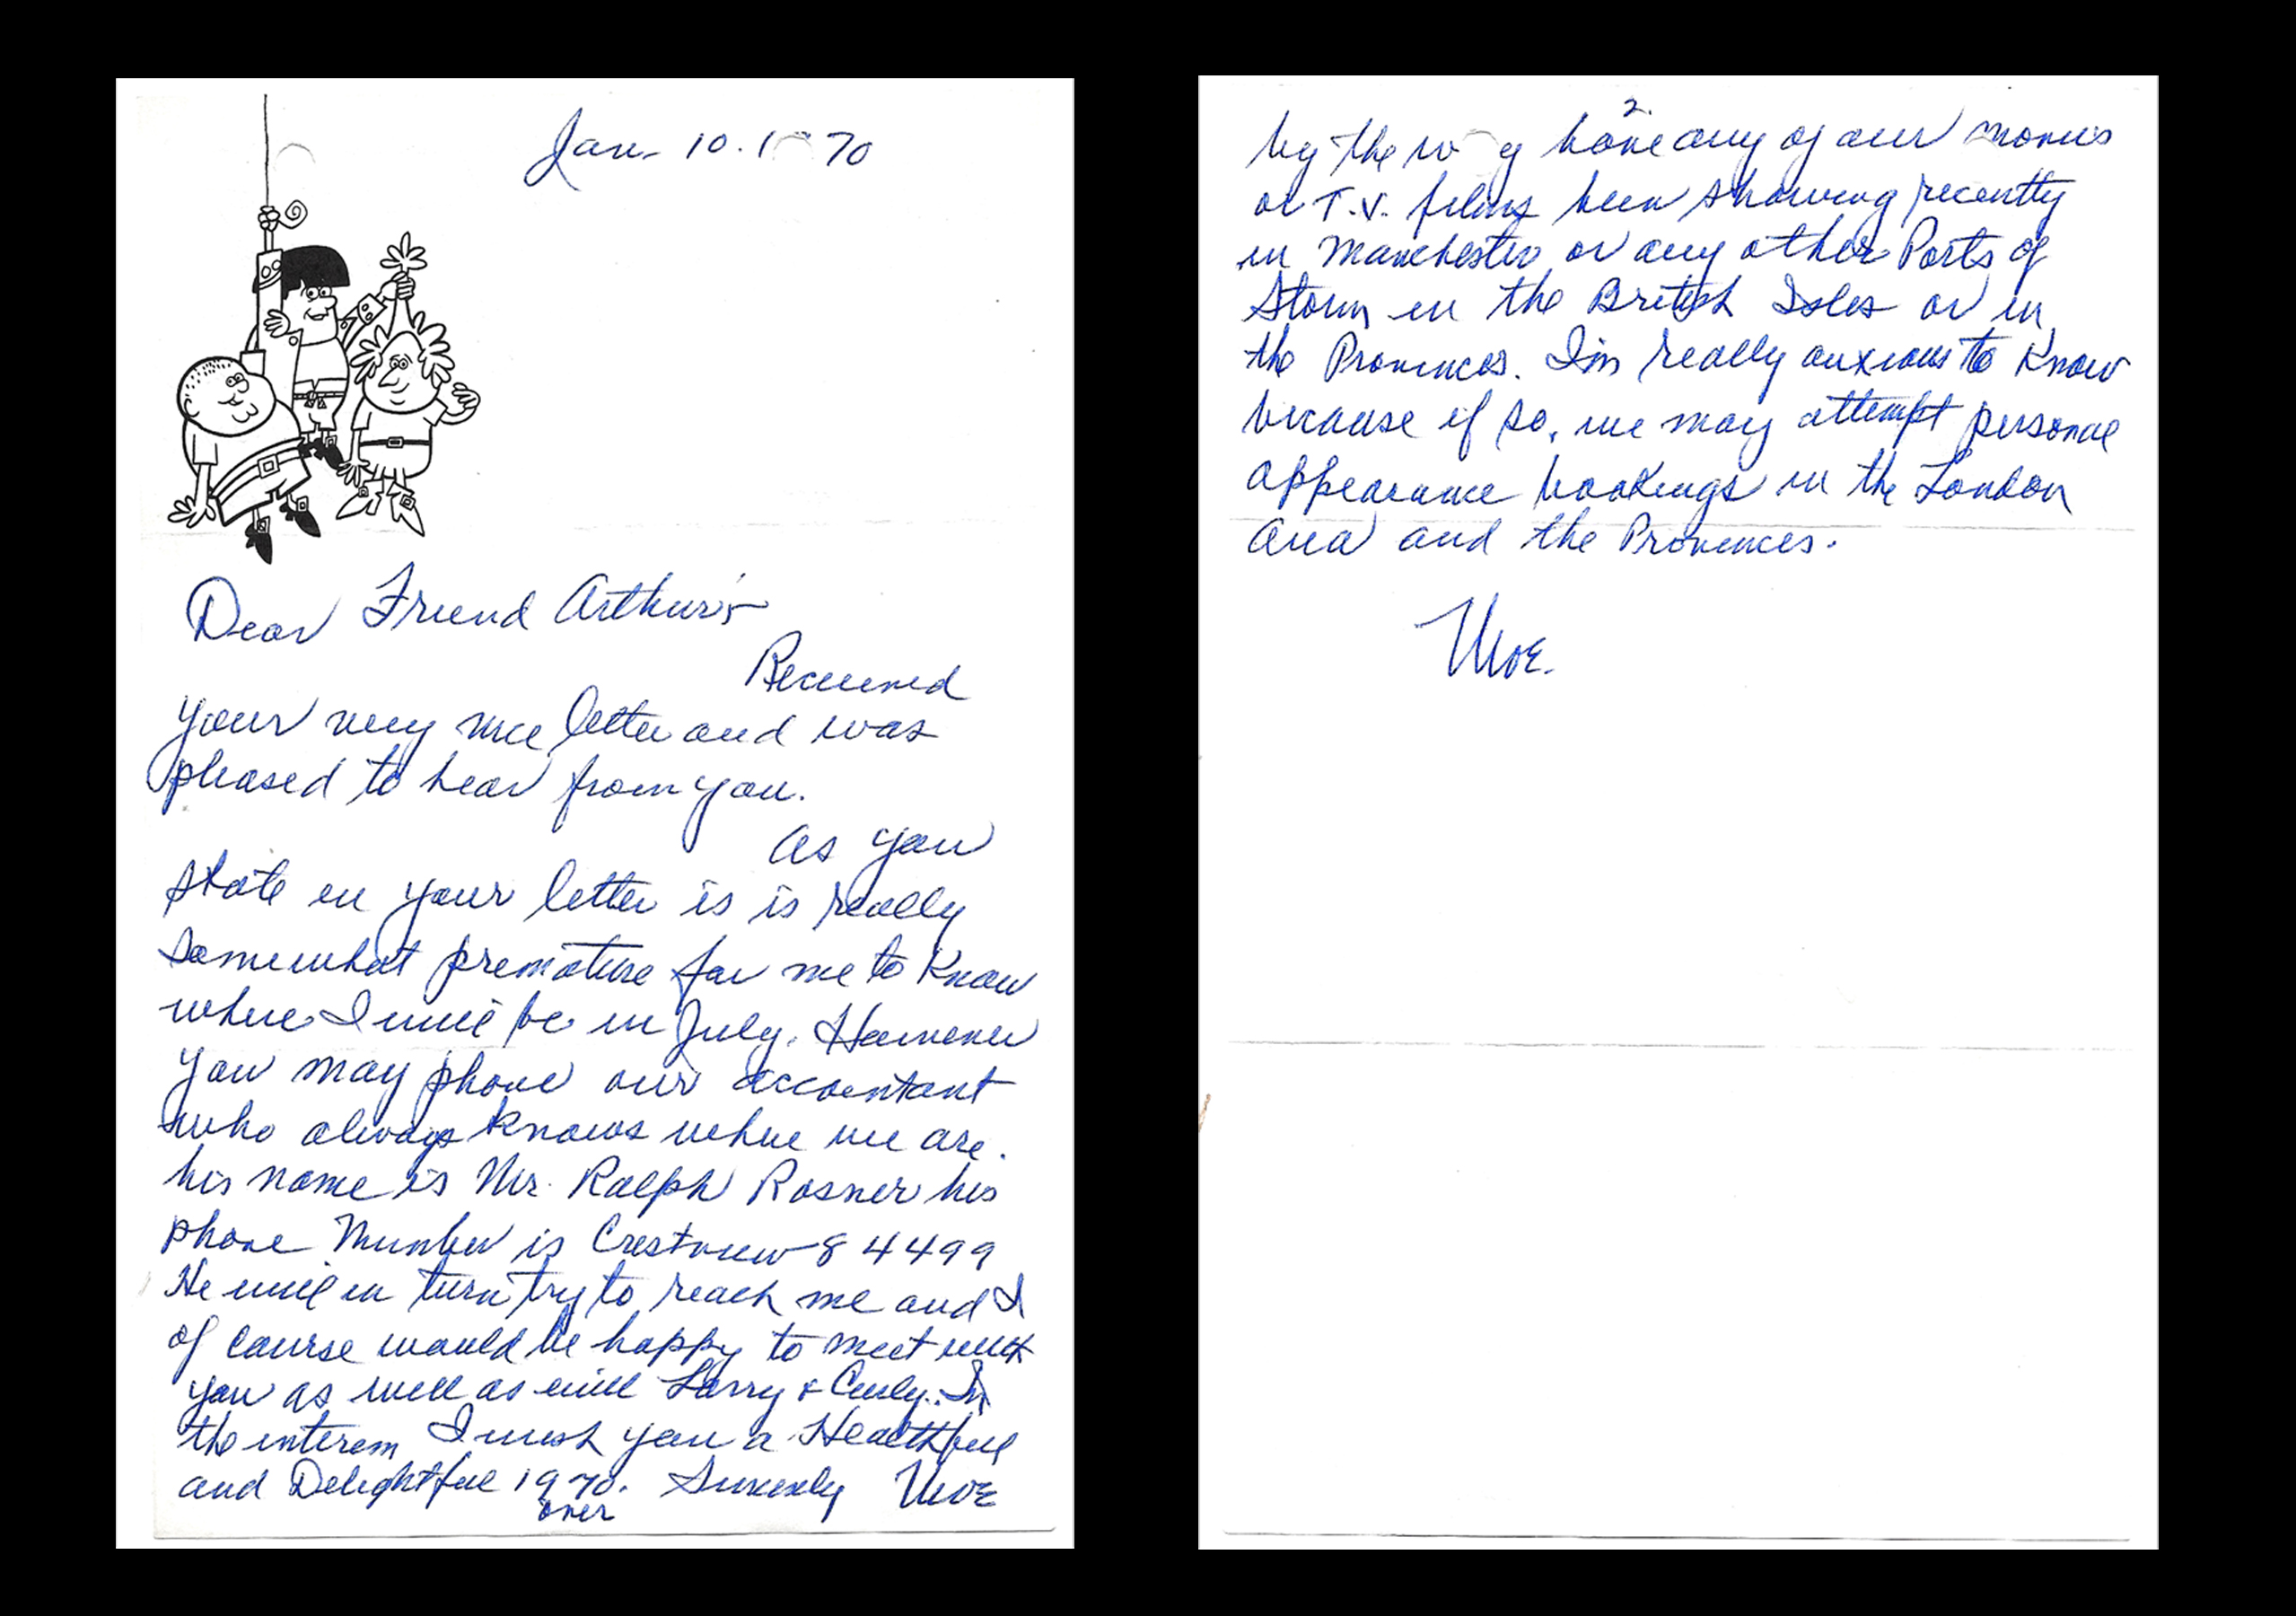 Jan. 10. 1 70
Dear Friend Arthur:-
Received
your very nice letter and was
pleased to hear from you.
As you
state in your letter is is really
somewhat premature for me to know
where I will be in July. However
you may phone our accountant
who always knows where we are.
his name is Mr. Ralph Rosner his
phone Number is Crestview 8 4499
He will in turn try to reach me and I
of course would be happy to meet with
you as well as will Larry & Curly. In
the interem I wish you a Healthful
and Delightful 1970. Sincerely Moe
over
2.
by the w y have any of our movies
or T.V. films been showing recently
in Manchester or any other Ports of
Storm in the British Isles or in
the Provinces. I'm really anxious to know
because if so, we may attempt personal
appearance bookings in the London
Area and the Provences.
Moe.